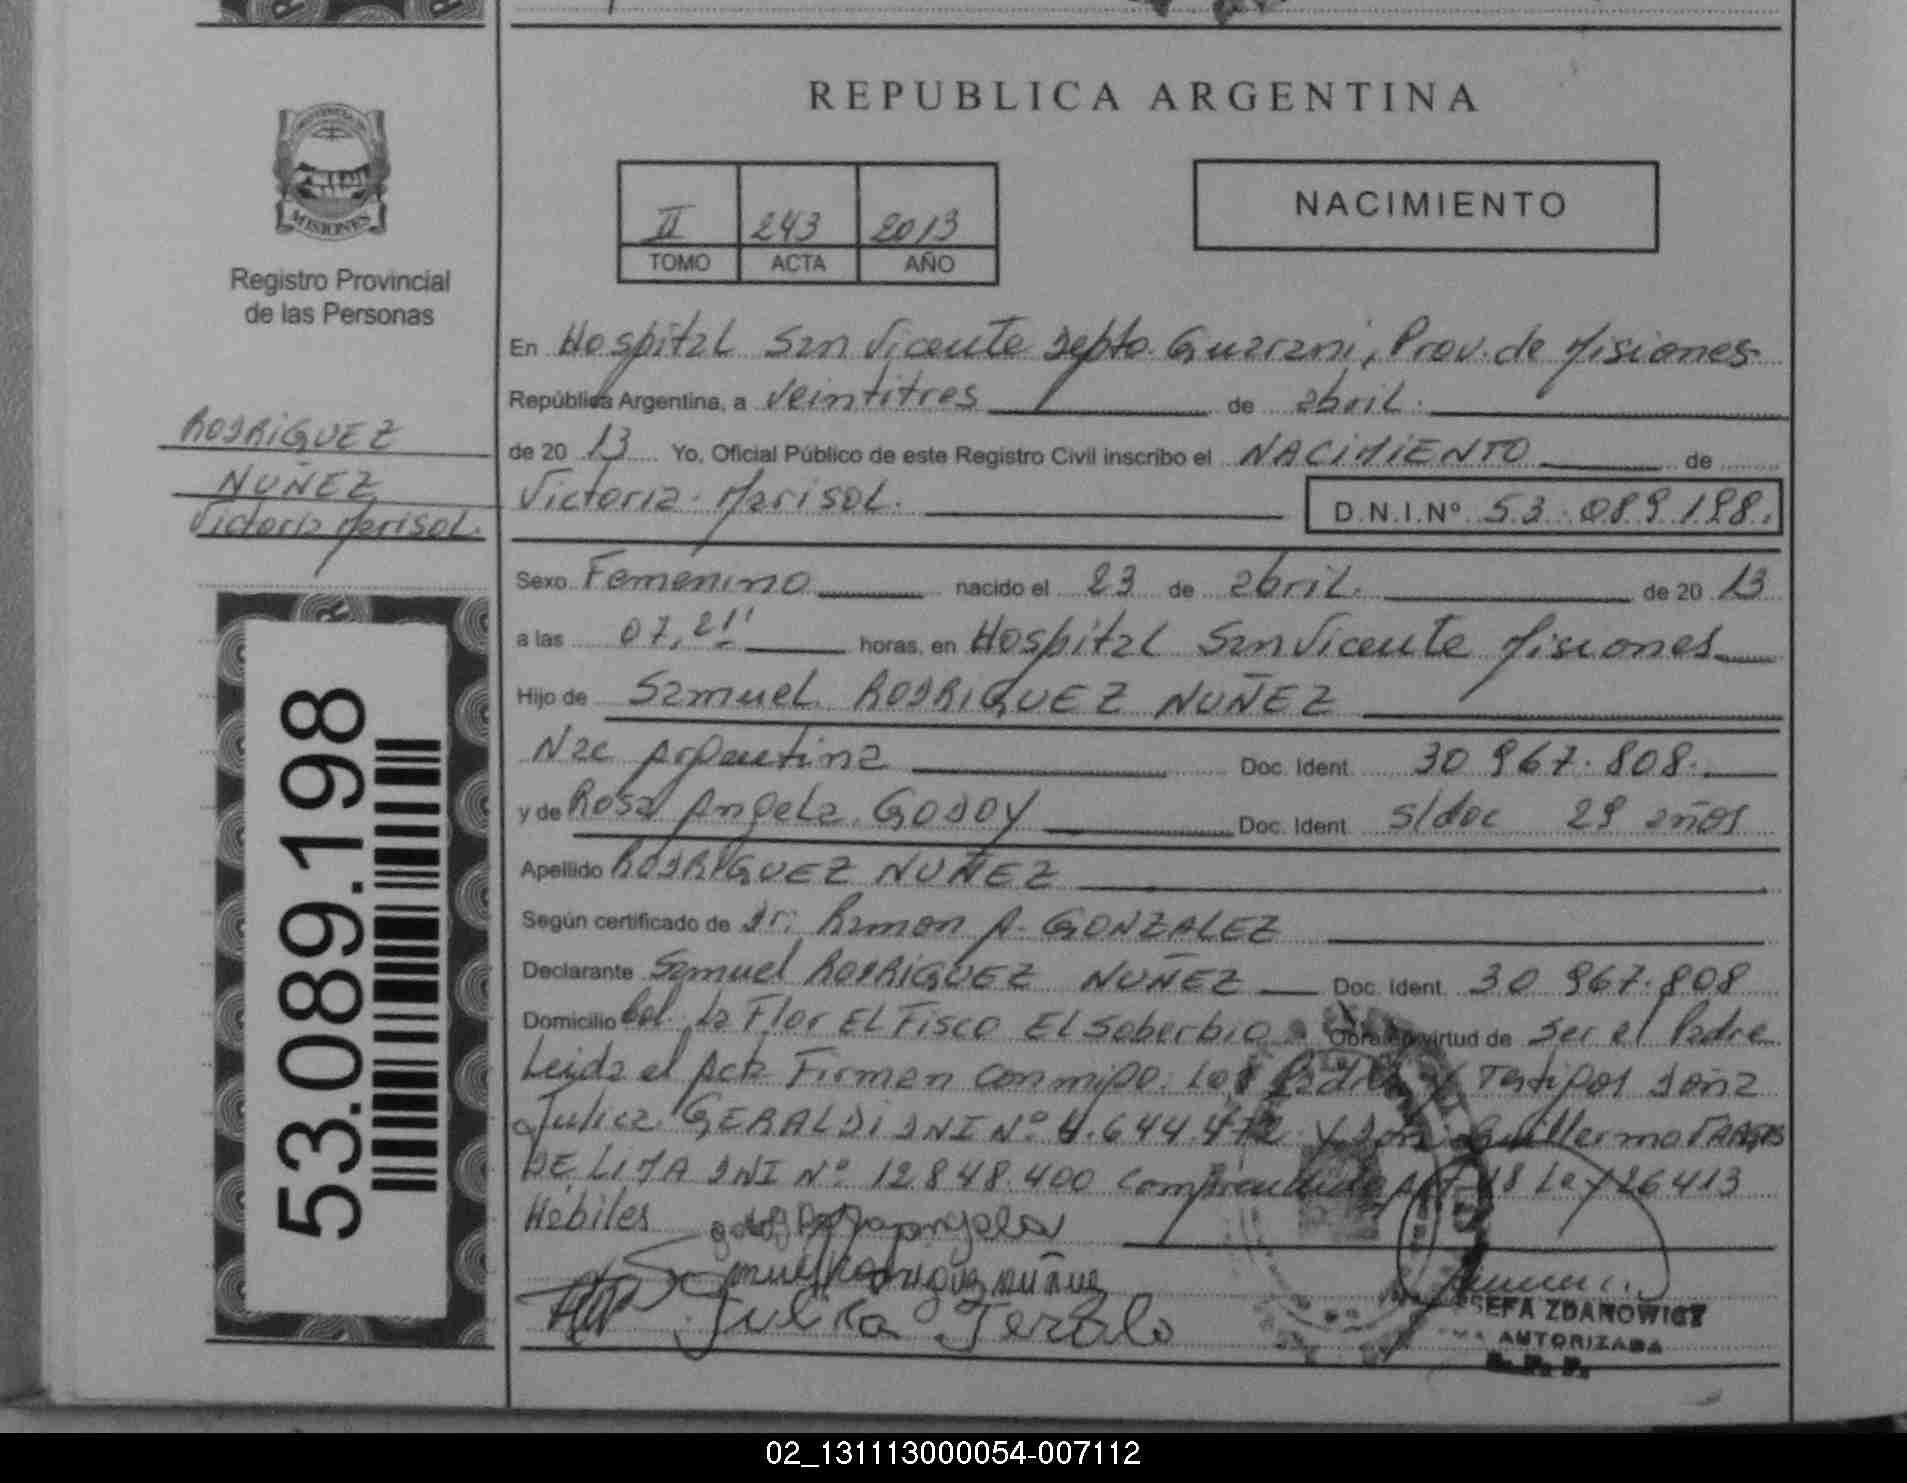 REPUBLICA ARGENTINA
MISIONES
Registro Provincial
de las Personas
II 243 2013
TOMO ACTA AÑO
NACIMIENTO
RODRIGUEZ
NUÑEZ
Victoria Marisol.
53.089.198
En Hospital San Vicente Depto. Guarani, Prov. de Misiones
República Argentina, a veintitres de abril.
de 20 13 Yo, Oficial Público de este Registro Civil inscribo el NACIMIENTO de
Victoria Marisol. D.N.I.Nº 53.089.198.
Sexo Femenino nacido el 23 de abril. de 20 13
a las 07,21' horas, en Hospital San Vicente Misiones
Hijo de Samuel RODRIGUEZ NUÑEZ
Nac Argentina Doc. Ident. 30 967.808.
y de Rosa Angela GODOY Doc. Ident. s/doc 29 años
Apellido RODRIGUEZ NUÑEZ
Según certificado de Dr: Ramon A. GONZALEZ
Declarante Samuel RODRIGUEZ NUÑEZ Doc. Ident. 30 967.808
Domicilio Col. La Flor El Fisco El Soberbio Obra en virtud de ser el Padre
Leida el Acta Firman conmigo Los Padres y Testigos Doña
Julia GERALDI DNI Nº 4.644.472 y Don Guillermo
DE LIMA DNI Nº 12.848.400 Art 18 Ley 26413
Hábiles
Julia
SEFA ZDANOWICZ
AUTORIZADA
R. P. P.
02_131113000054-007112